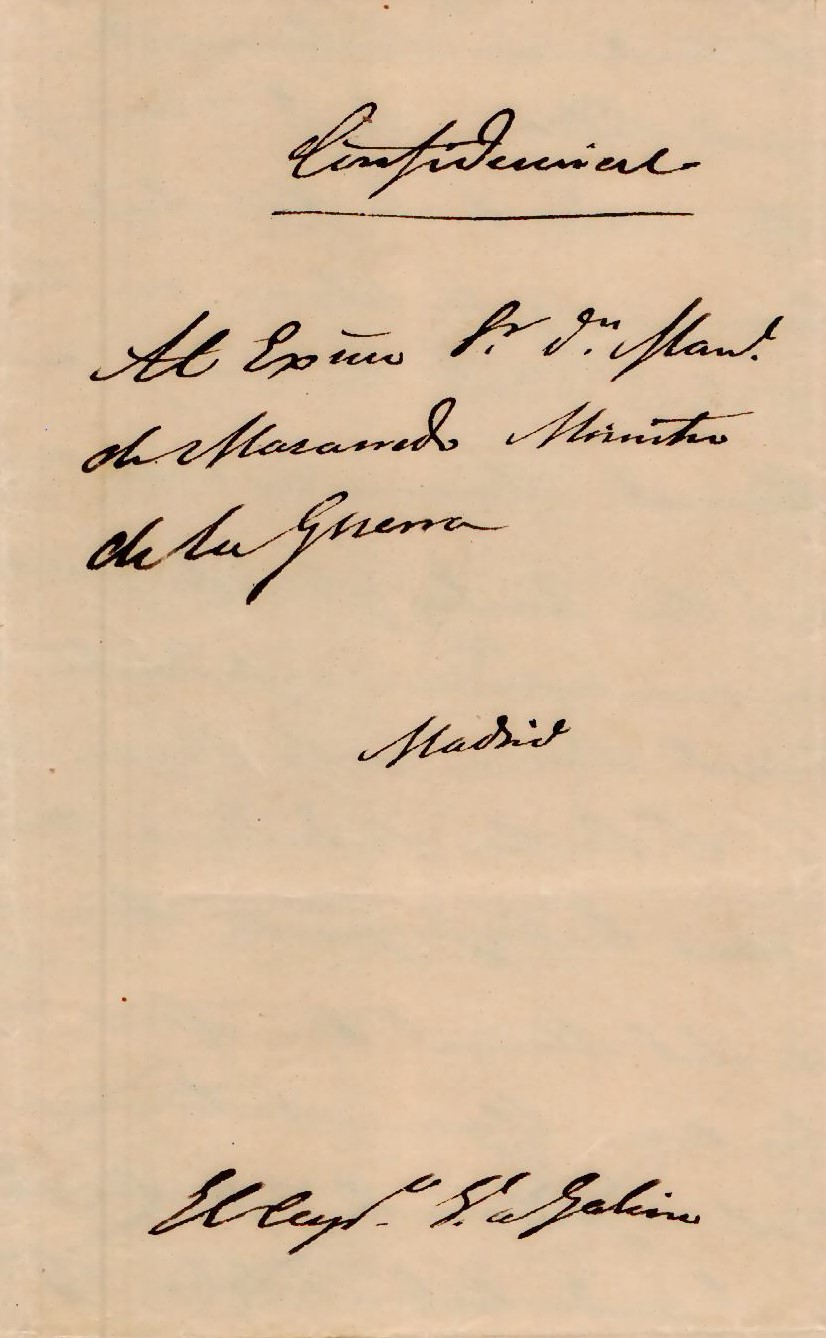 Confidencial
Al Exmo Sr. Dn. Manl.
de Mazarredo Ministro
de la Guerra
Madrid
El Capn. Gl. de Galicia